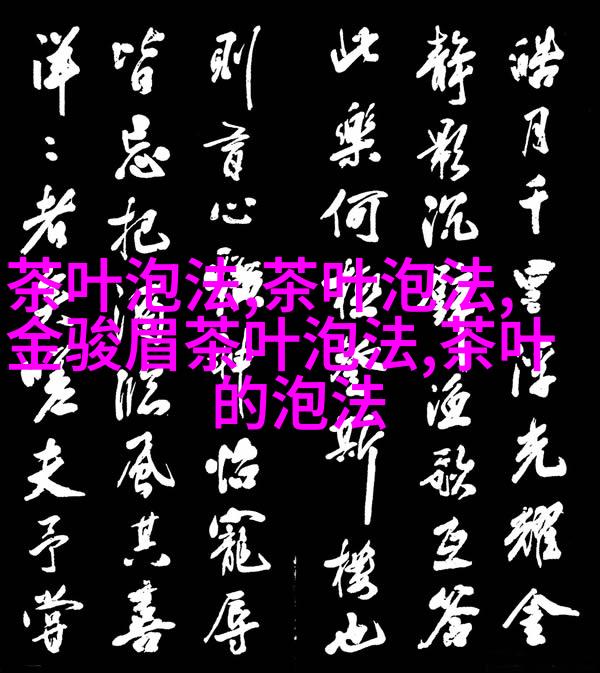 皓月千里浮光耀金
静影沉璧渔歌互答
此樂何極登斯樓也
則有心曠神怡寵辱
皆忘把酒臨風其喜
洋洋者矣嗟夫予嘗
茶叶泡法,茶叶泡法,
金骏眉茶叶泡法,茶叶
的泡法